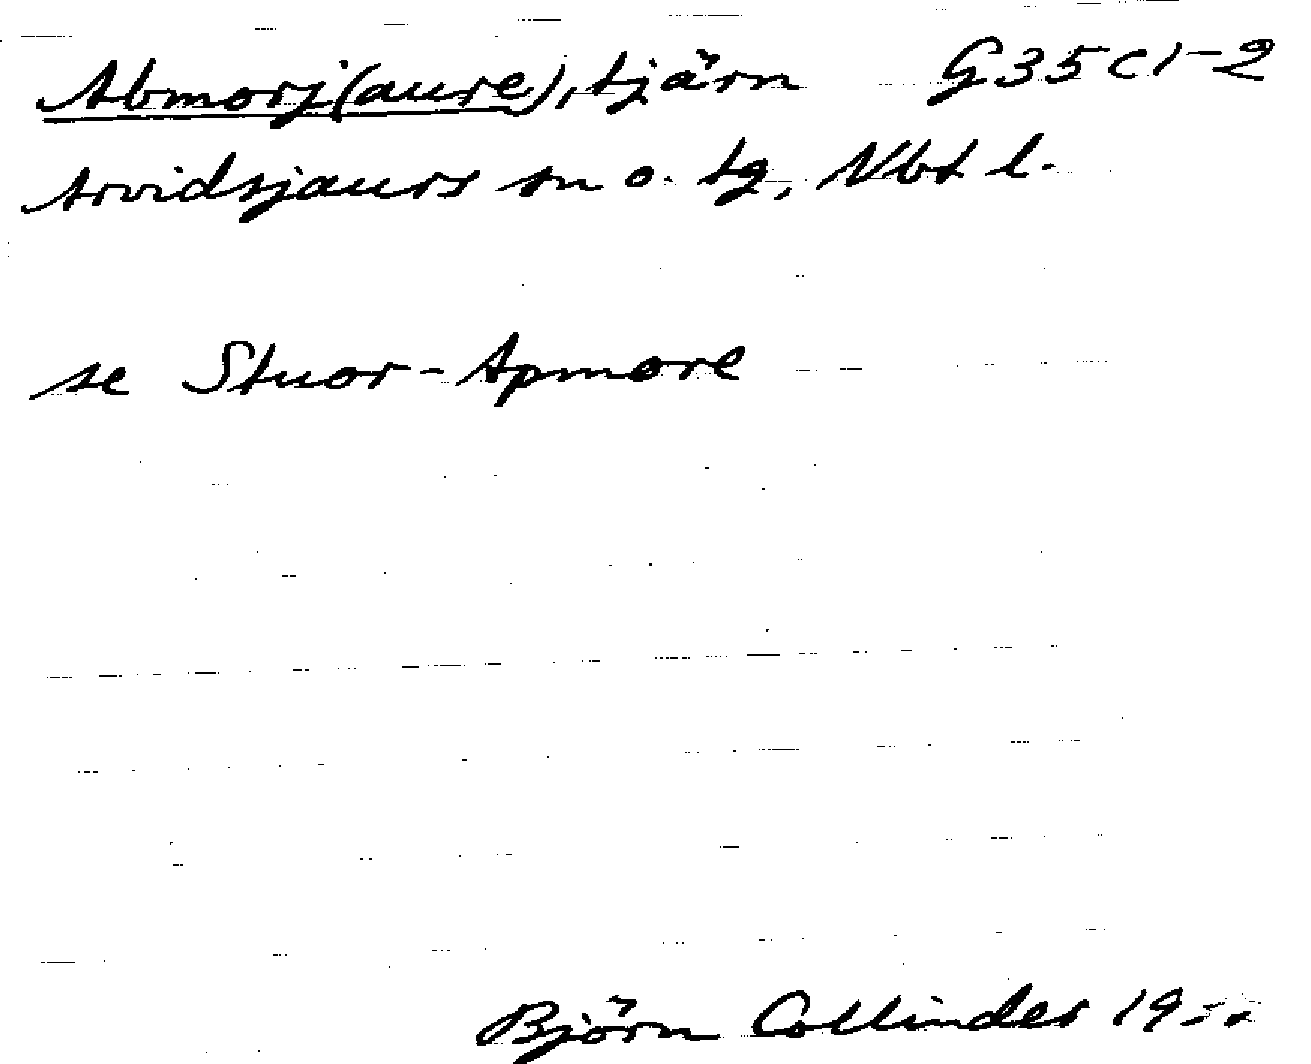 Abmorj(aure), tjärn G35c1-2
Arvidsjaurs sn o. tg, Nbt l.
se Stuor-Apmore
Björn Collinder